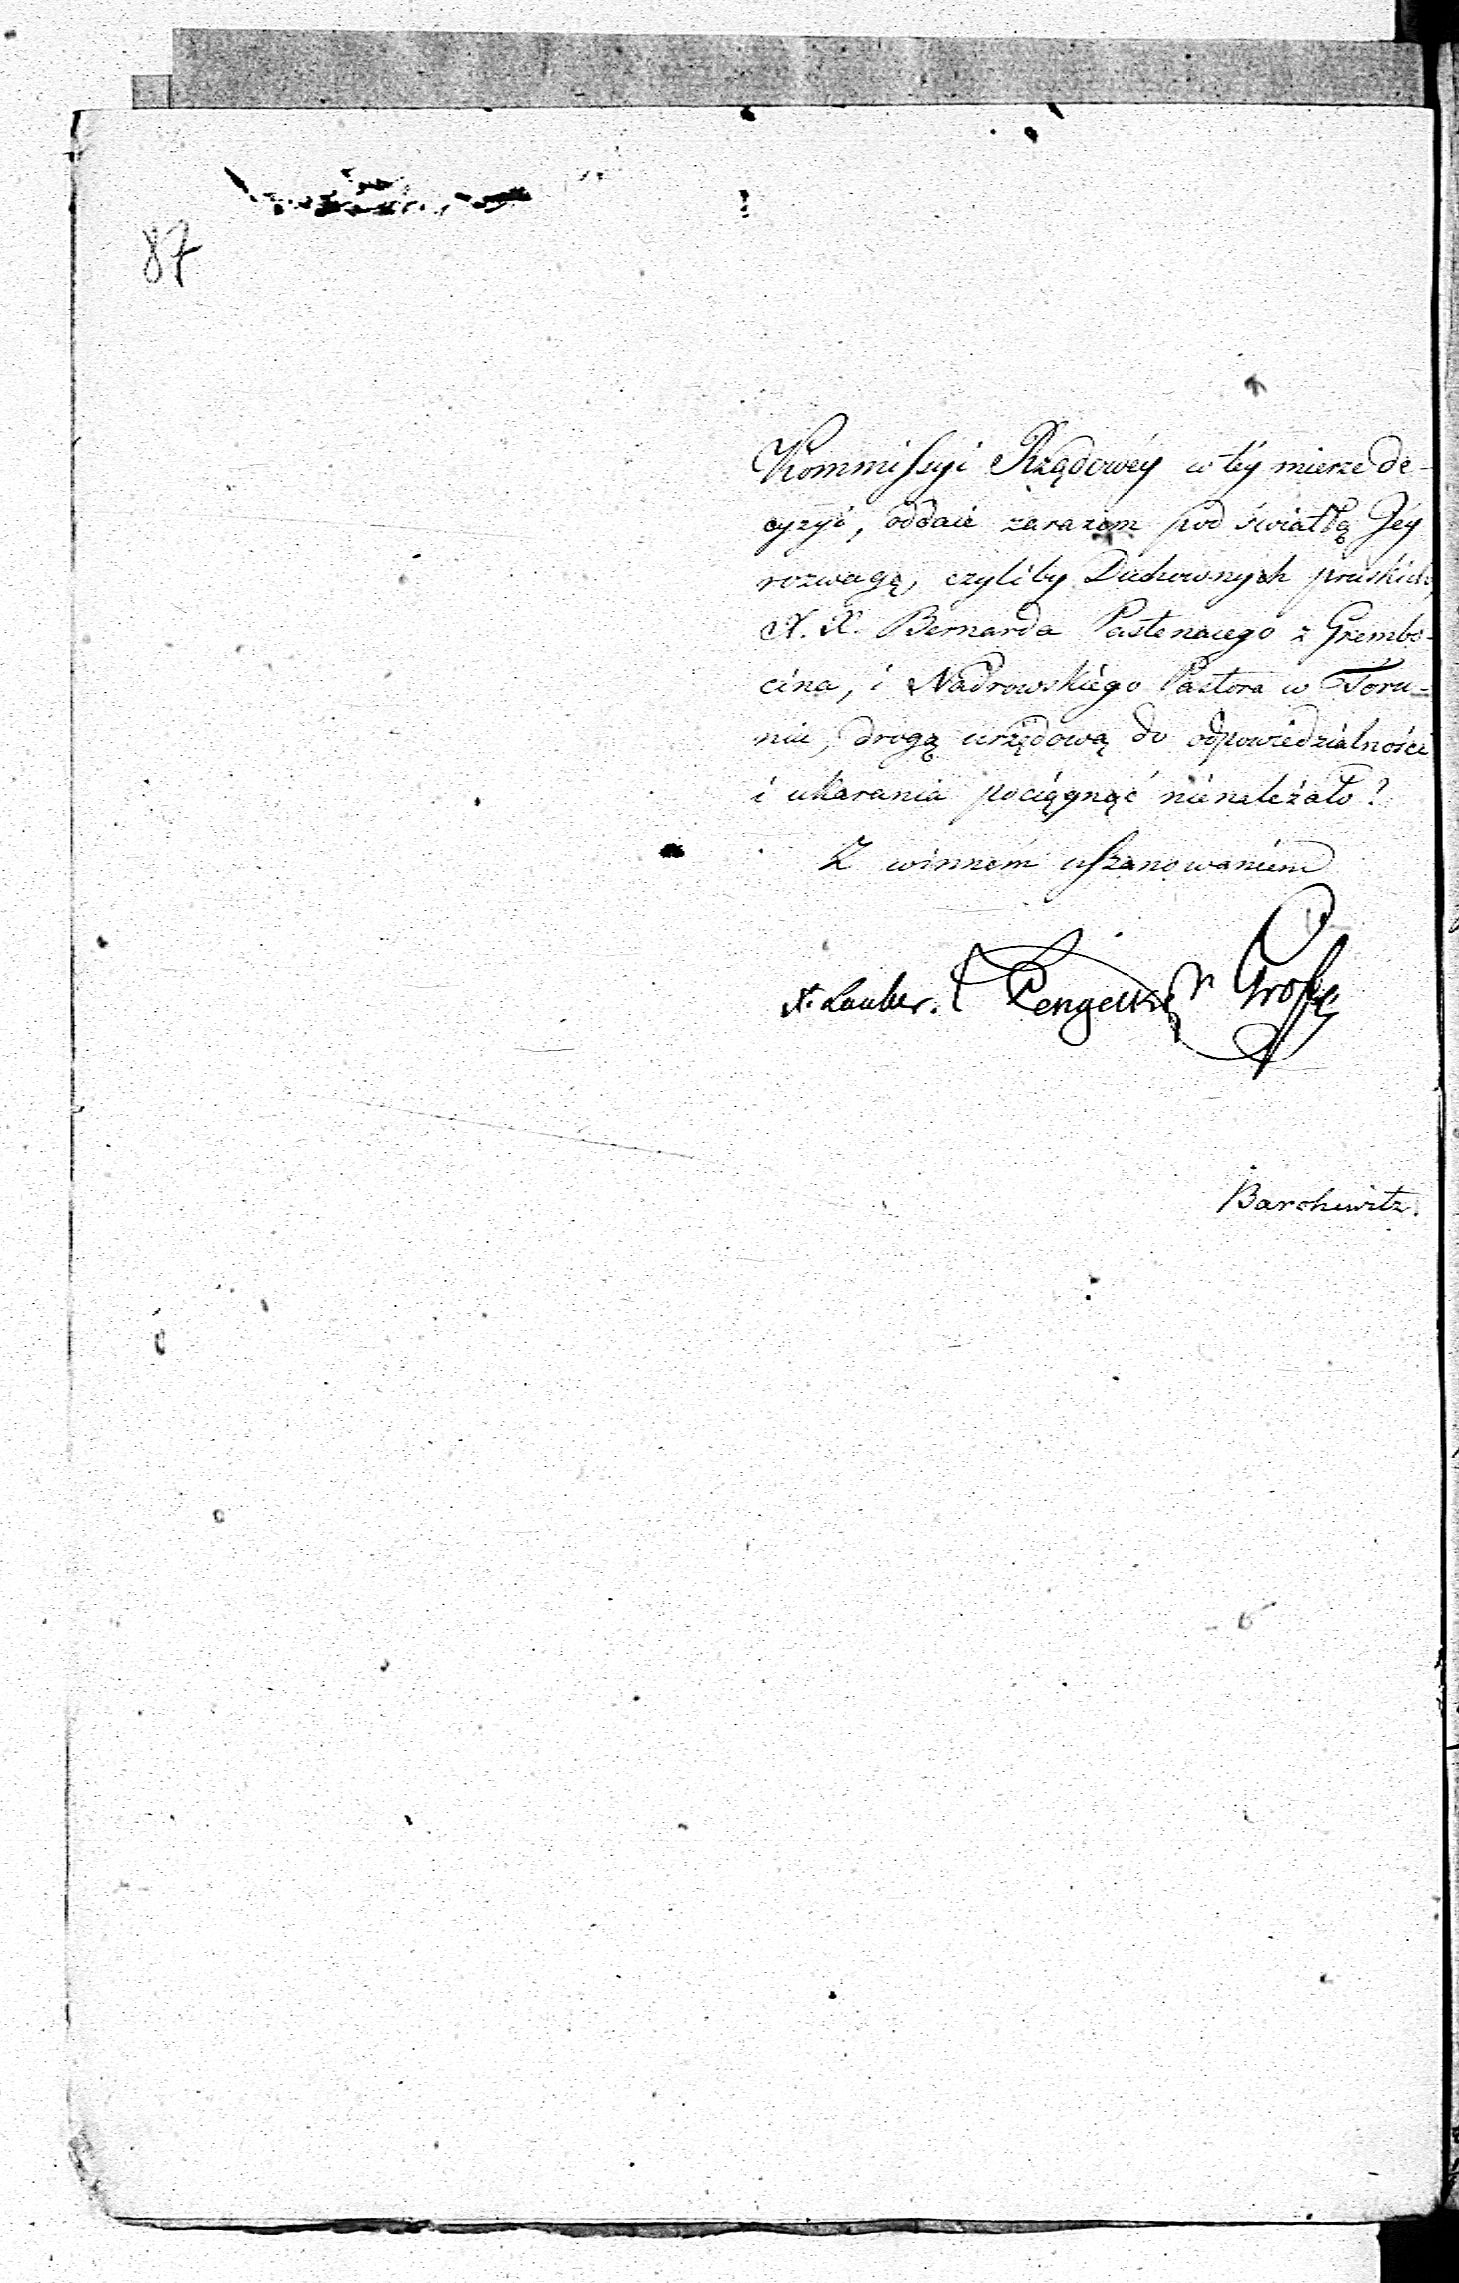 87
Kommissyi Rządowéy w téy mierze de-
cyzyi, oddaie zarazem pod światłą Jéy
rozwagę, czyliby Duchownych pruskich,
X. X. Bernarda Pastenaciego z Grembo-
cina, i Nadrowskiégo Pastora w Toru-
niu, drogą urzędową do odpowiedzialności
i ukarania pociągnąć nienależało?
Z winnem uszanowaniem
X. Lauber. Pengelki
Barchewitz.